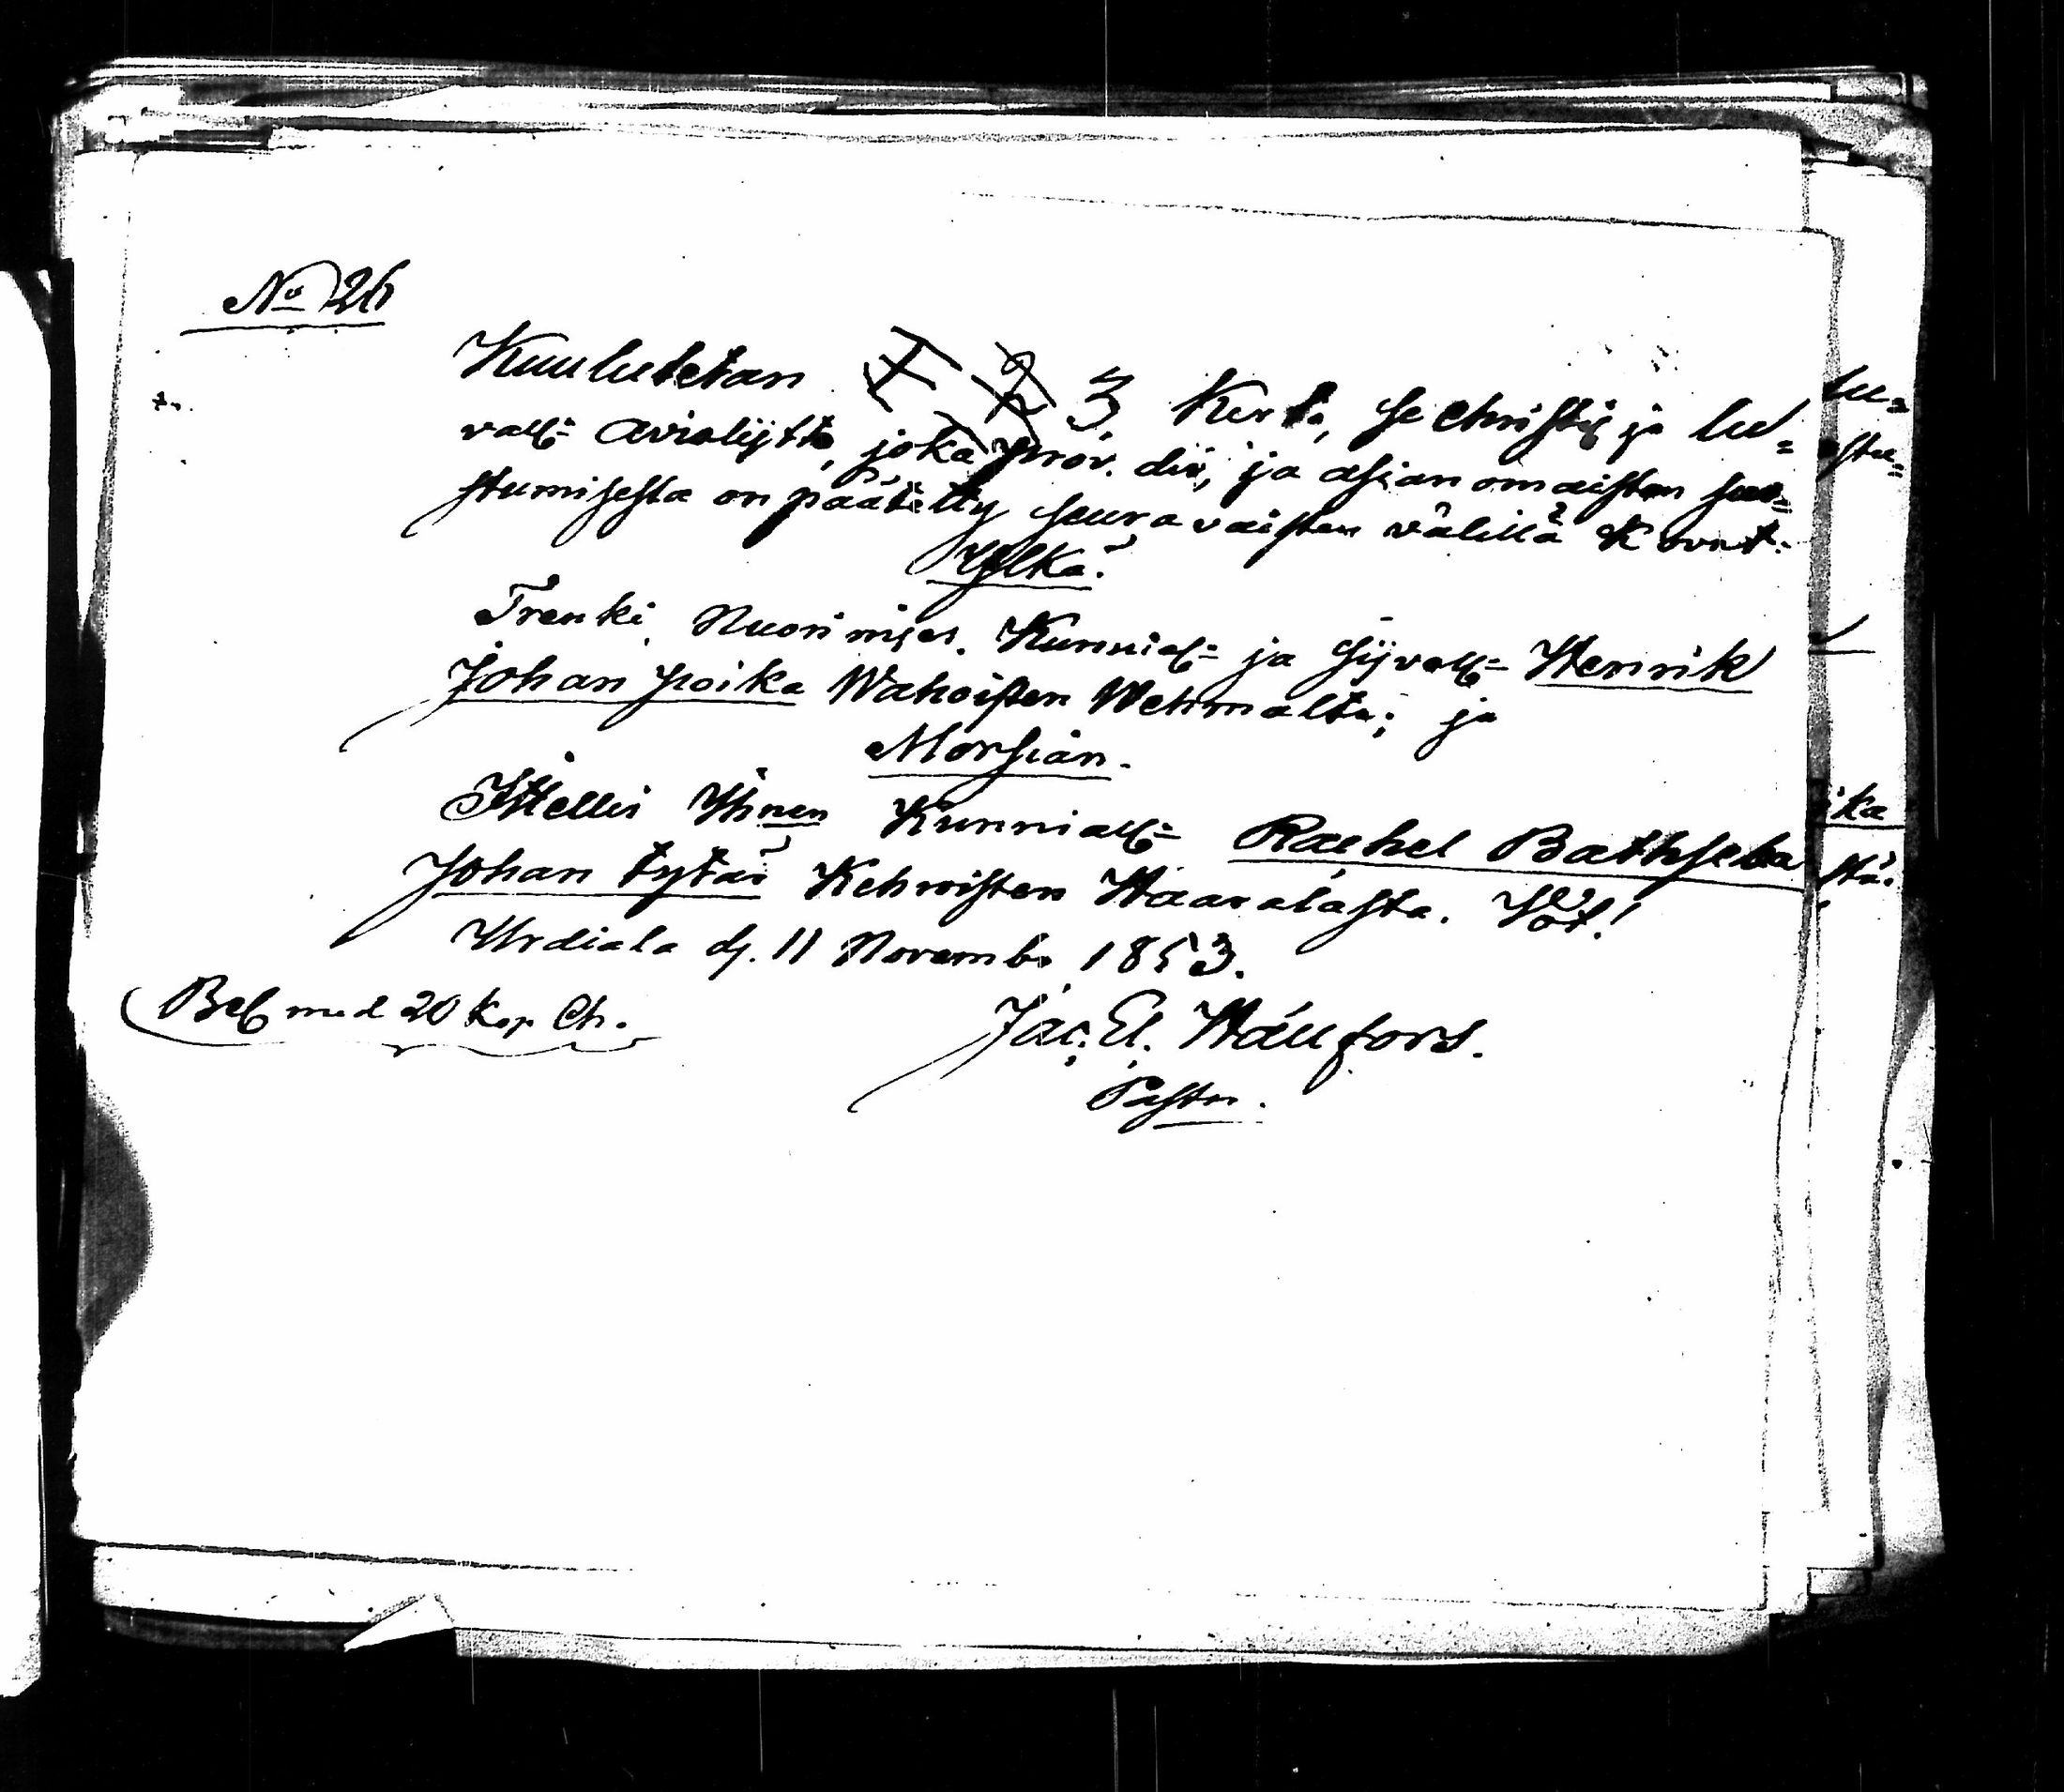 No 26
Kuulutetan 1 2 3 Kerta, se christil. ja lu=
vall= avioliitto, joka prov. div, ja asianomaisten suo=
stumisesta on päätetty seuravaisten välillä Kont.
Ylkä.
Trenki Nuorimies. Kunnial= ja Syvall= Henrik
Johan poika Wahoisten Wehmalta; ja
Morsian.
Ittellis Kunniall= Rachel Bathseba
Johan tytär Kehroisten Haaralasta.
Urdiala d. 11 Novemb. 1853.
Bef med 20 Kop Ch.
Jac. El. Hällfors.
Pastor.